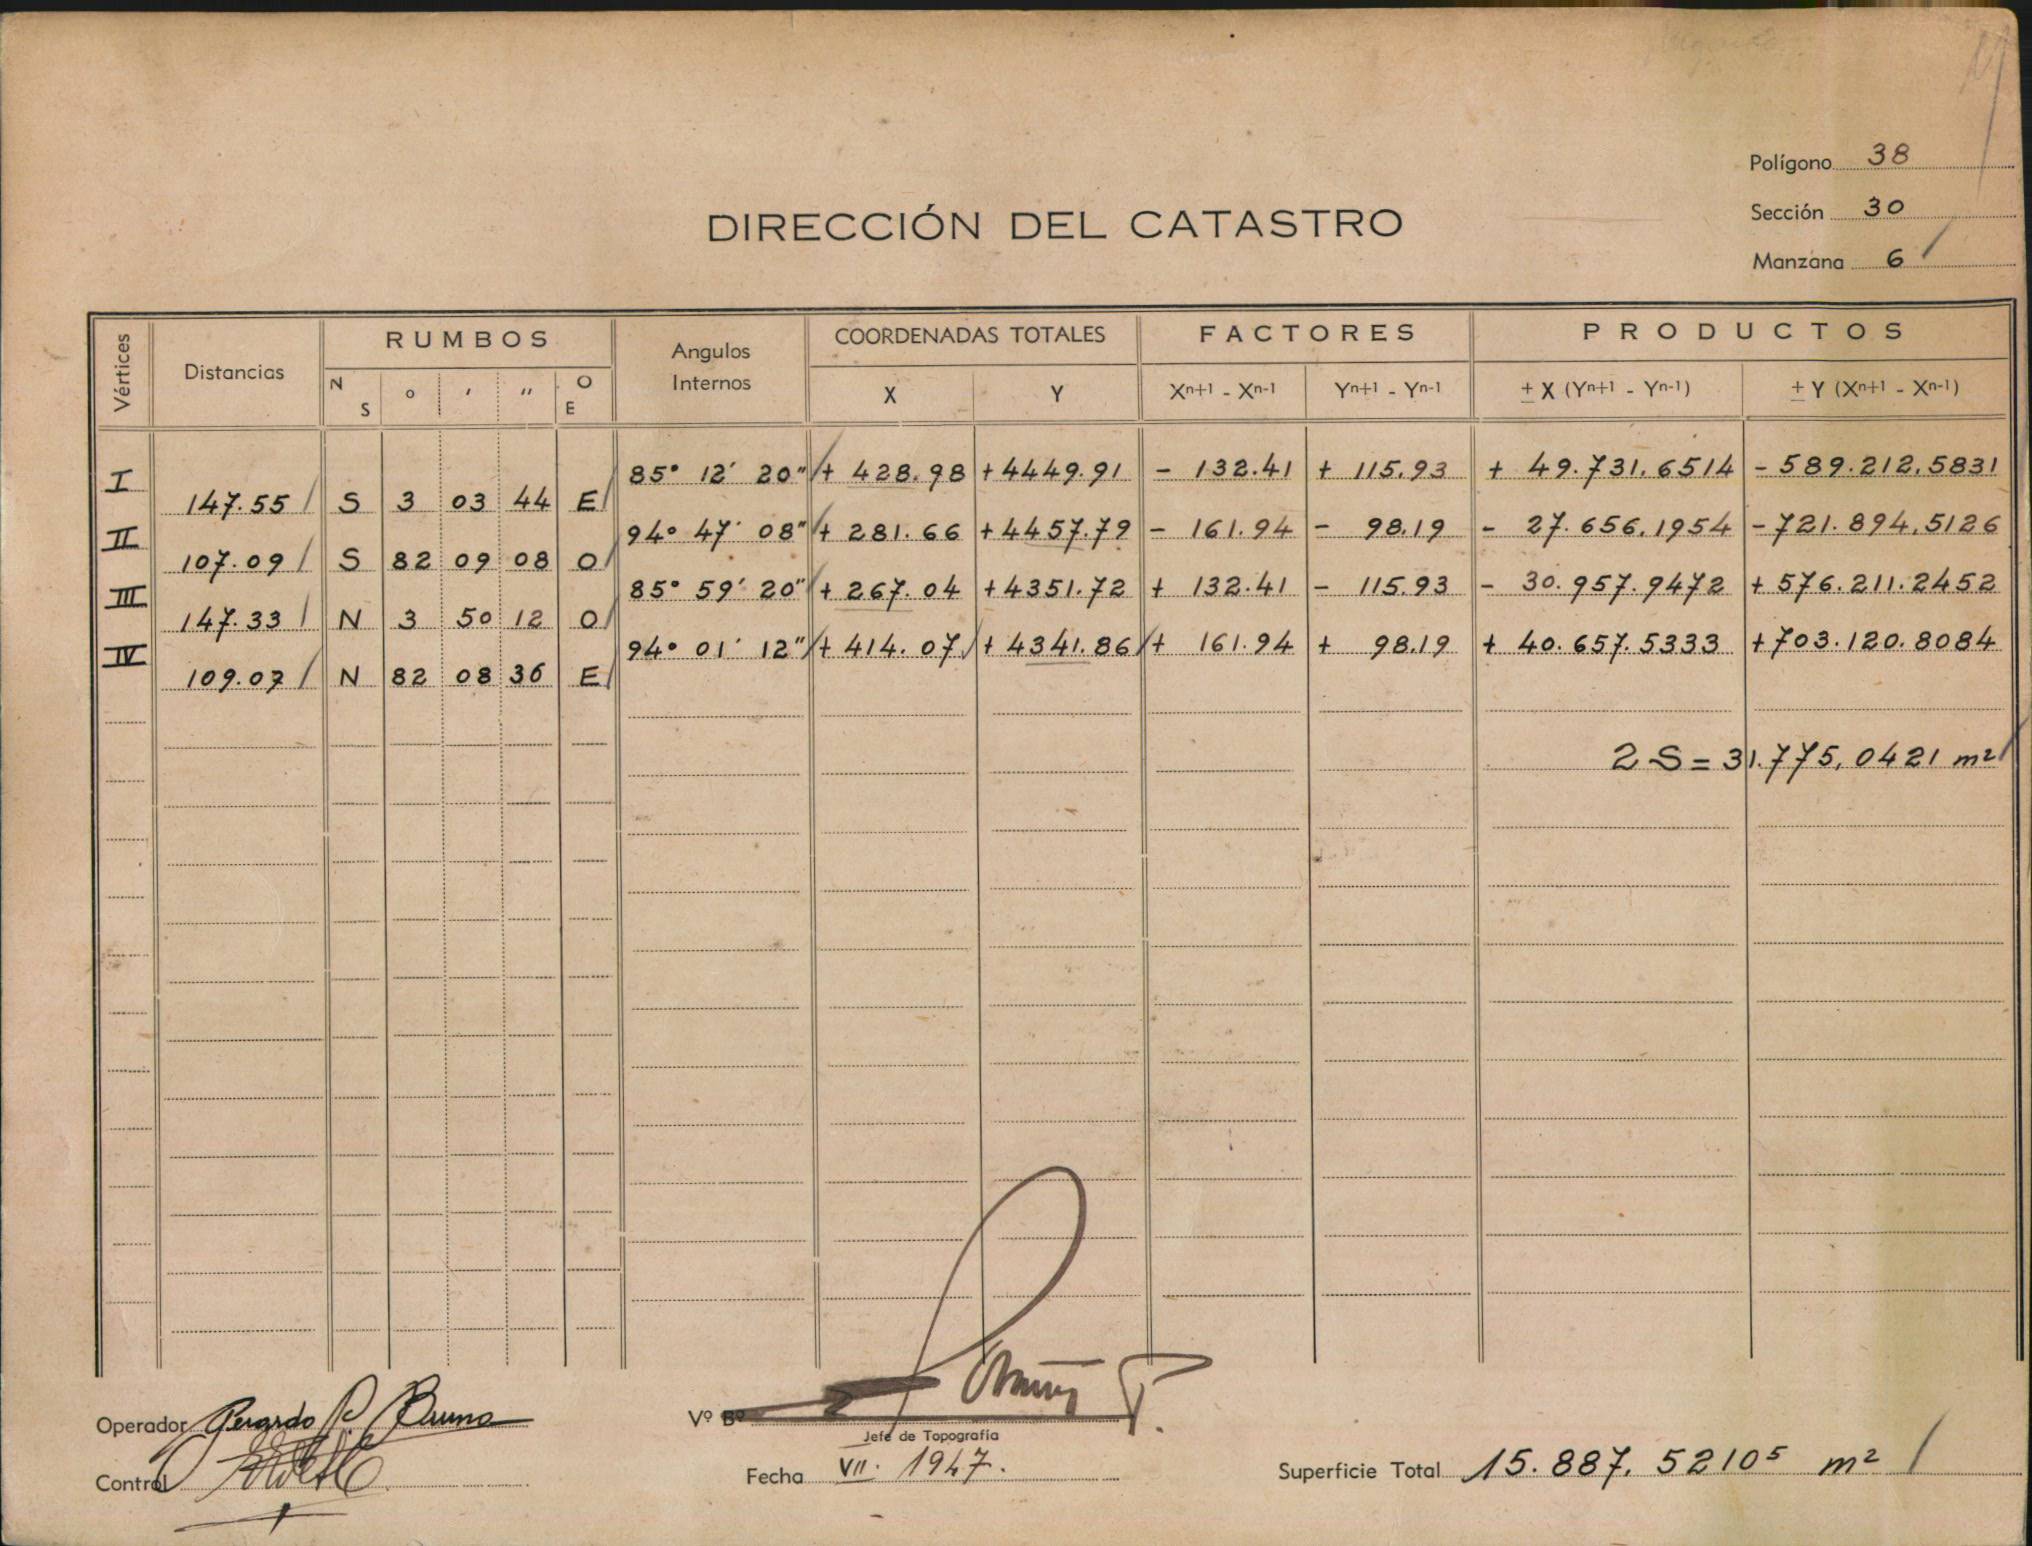 Polígono 38
Sección 30
Manzana 6
DIRECCIÓN DEL CATASTRO
Vértices Distancias RUMBOS Angulos Internos COORDENADAS TOTALES FACTORES PRODUCTOS
N S ° ′ ″ O E X Y Xn+1 - Xn-1 Yn+1 - Yn-1 ± X (Yn+1 - Yn-1) ± Y (Xn+1 - Xn-1)
I 85° 12′ 20″ + 428.98 + 4449.91 - 132.41 + 115.93 + 49.731.6514 - 589.212,5831
147.55 S 3 03 44 E
II 94° 47′ 08″ + 281.66 + 4457.79 - 161.94 - 98.19 - 27.656.1954 - 721.894,5126
107.09 S 82 09 08 O
III 85° 59′ 20″ + 267.04 + 4351.72 + 132.41 - 115.93 - 30.957.9472 + 576.211.2452
147.33 N 3 50 12 O
IV 94° 01′ 12″ + 414.07 + 4341.86 + 161.94 + 98.19 + 40.657.5333 + 703.120.8084
109.07 N 82 08 36 E
2 S = 31.775,0421 m²
Operador Gerardo P. Bruno
Vº Bº
Jefe de Topografía
Control
Fecha VII. 1947.
Superficie Total 15.887.5210⁵ m²